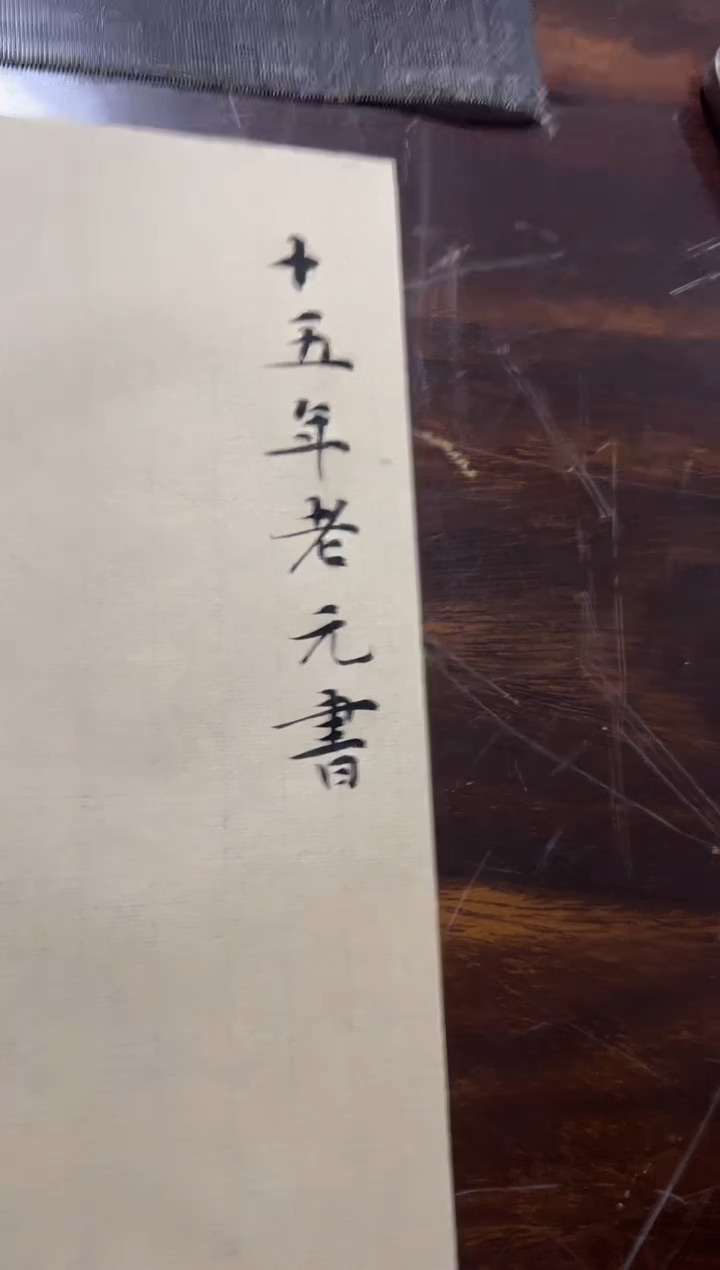 十五年老元書